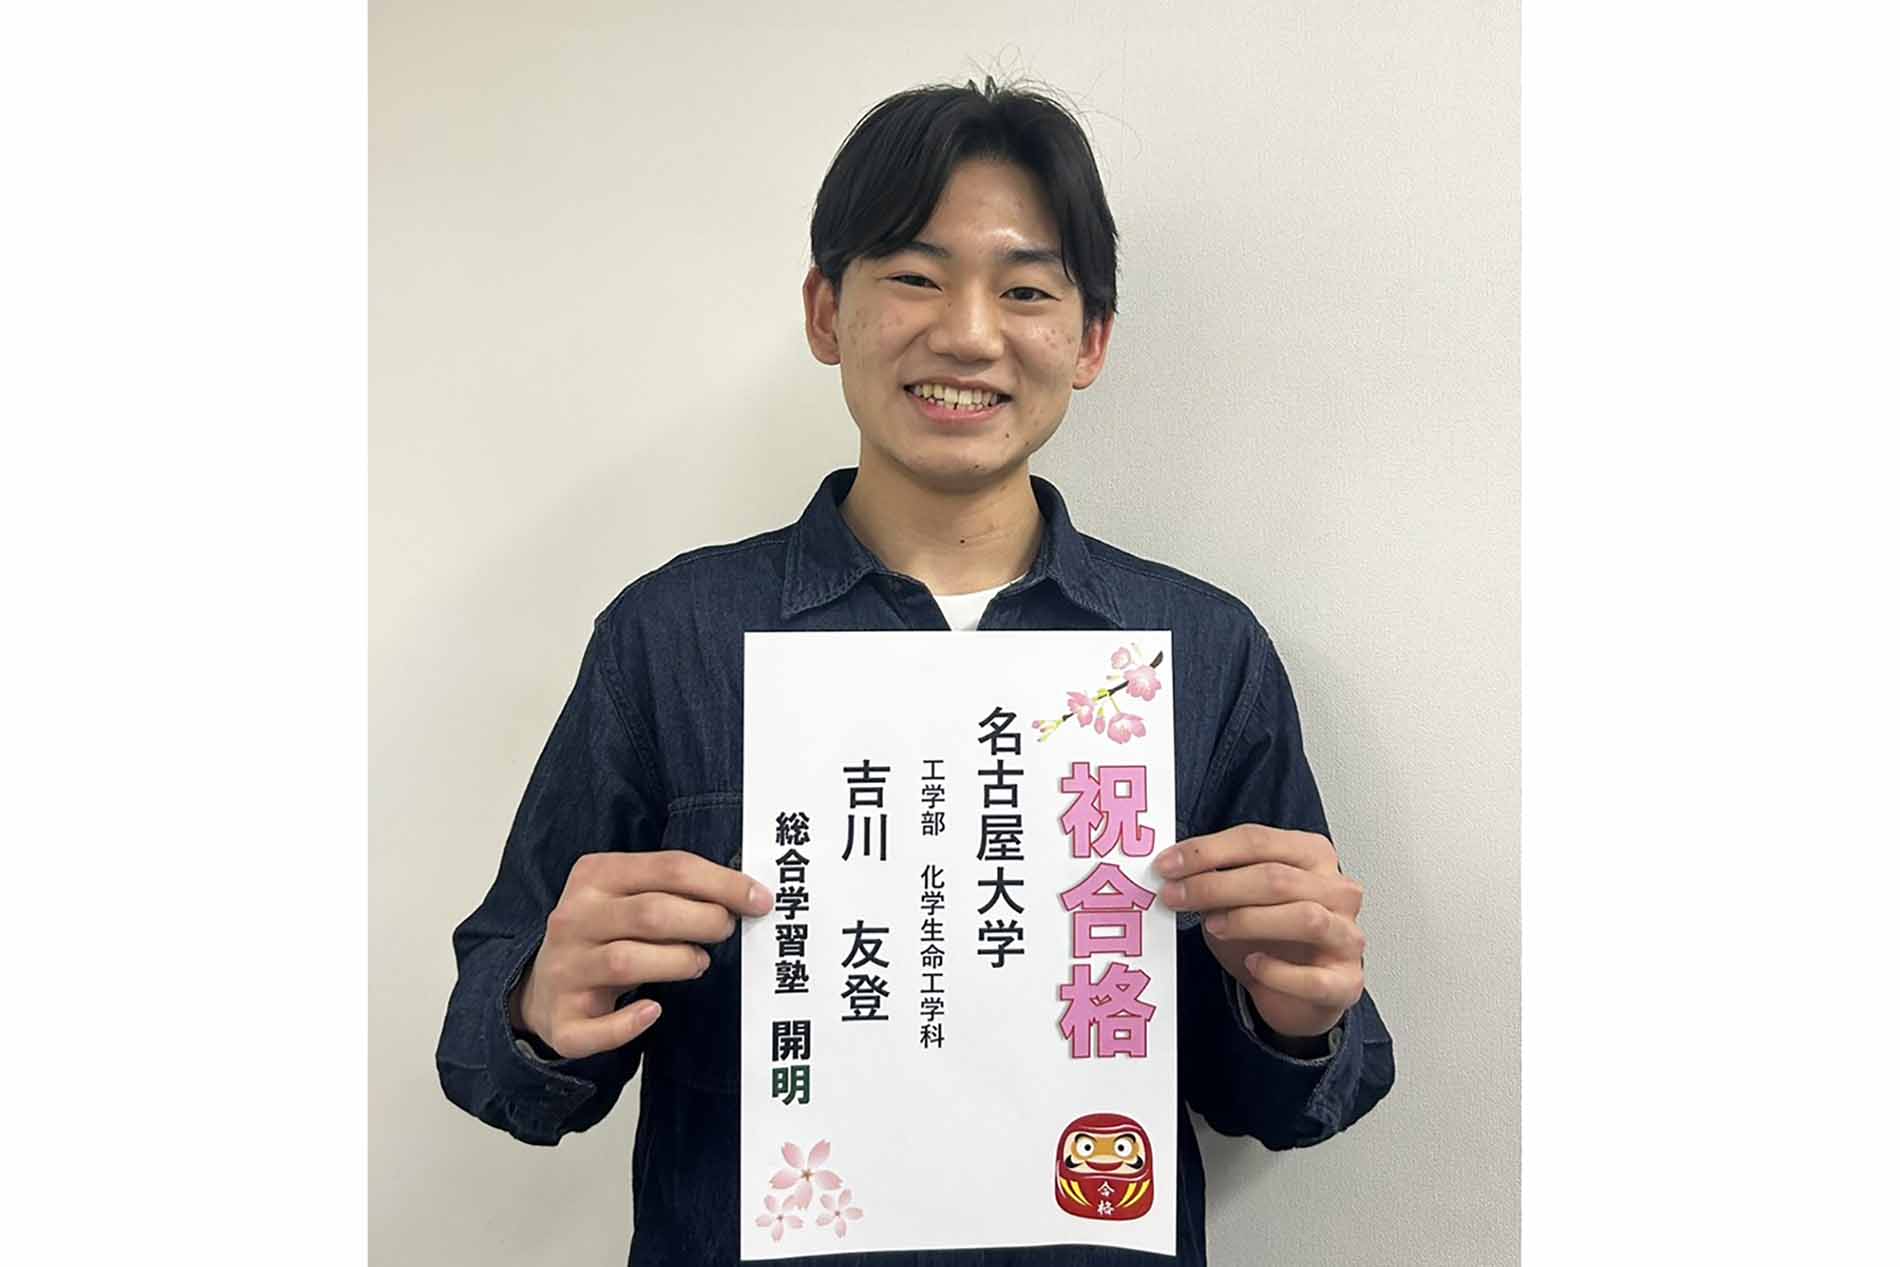 祝合格
名古屋大学
工学部 化学生命工学科
吉川 友登
総合学習塾 開明
合格